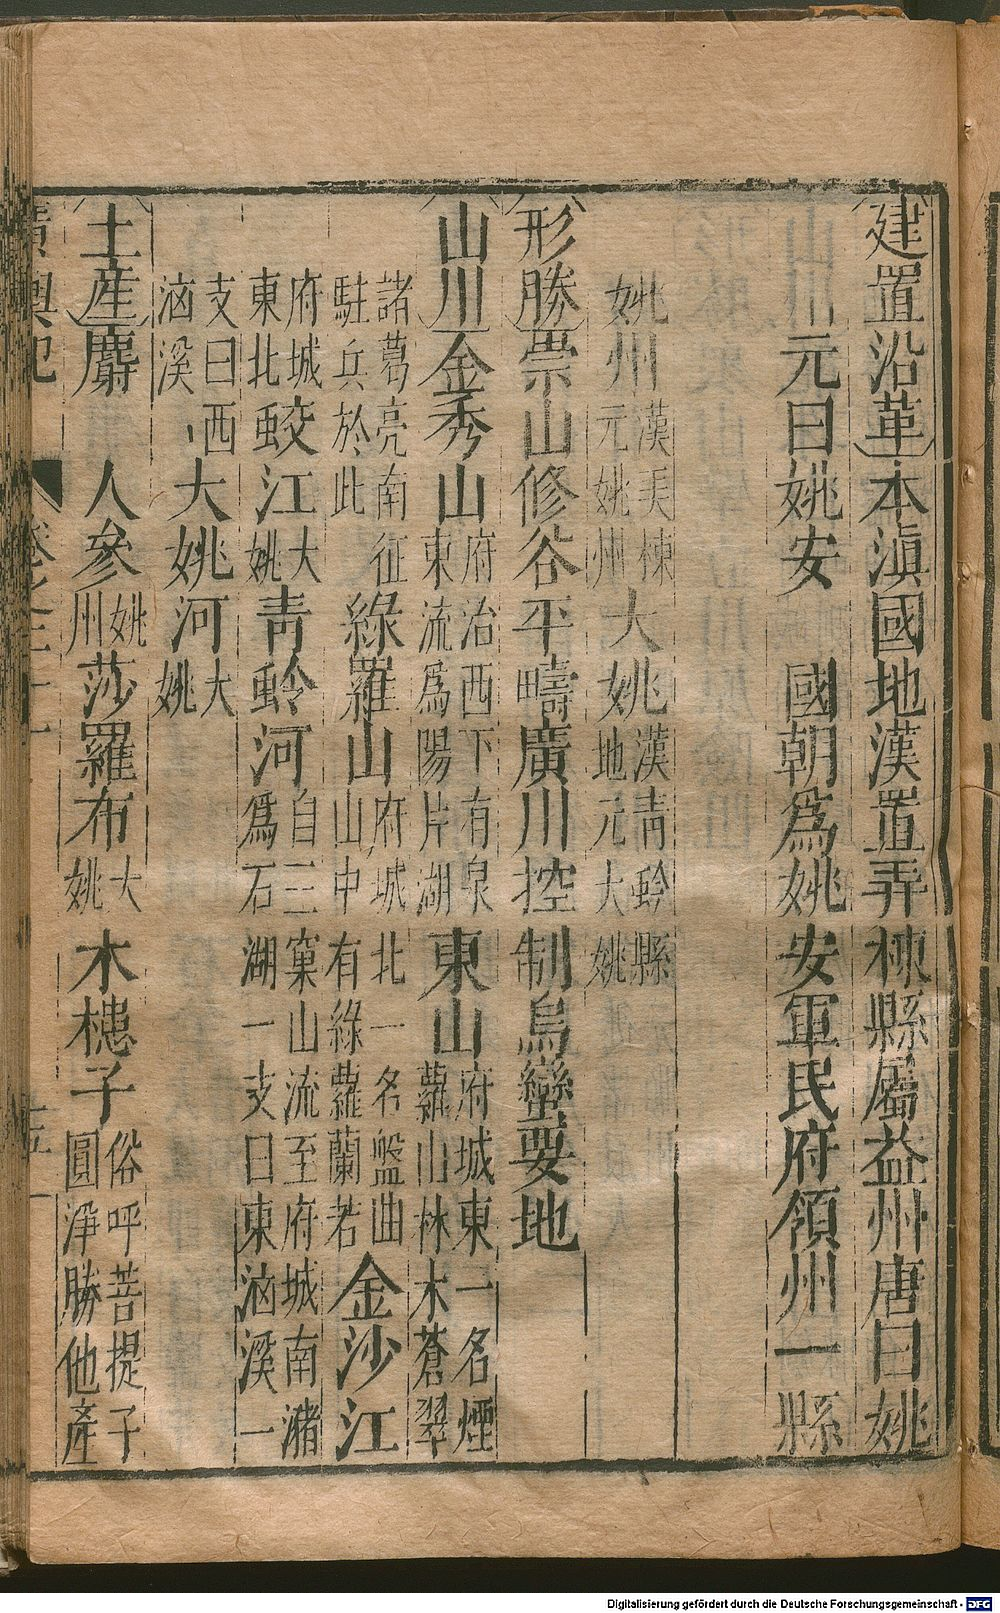 建置沿革本滇國地漢置弄棟縣屬益州唐曰姚
元曰姚安 國朝爲姚安軍民府領州一縣一
姚州漢弄棟元姚州大姚漢青蛉縣地元大姚
形勝崇山修谷平疇廣川控制烏蠻要地
山川金秀山府治西下有泉東流爲陽片湖東山府城東一名煙蘿山林木蒼翠
諸葛亮南征駐兵於此綠羅山府城北一名盤曲山中有綠蘿蘭若金沙江
府城東北蛟江大姚青蛉河自三窠山流至府城南瀦爲石湖一支曰東湳溪一
支曰西湳溪大姚河大姚
土產麝 人參姚州莎羅布大姚木槵子俗呼菩提子圓淨勝他產
廣輿記 卷之二十一
Digitalisierung gefördert durch die Deutsche Forschungsgemeinschaft - DFG